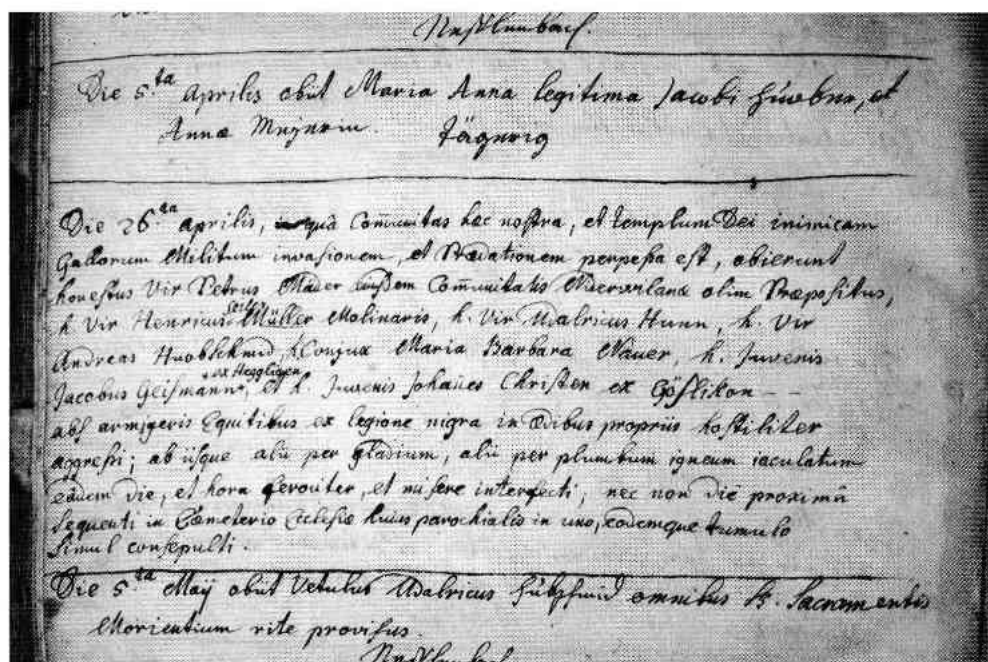 Nesslenbach.
Die 5.ta Aprilis obiit Maria Anna legitima Jacobi Huobner, et
Annæ
Tägerig
Die 26.ta Aprilis, quâ Com̄unitas hæc nostra, et templum Dei inimicam
Gallorum Militum invasionem, et Prædationem perpessa est, obierunt
honestus Vir Petrus Mader eiusdem Com̄unitatis Niderwilanæ olim Præpositus,
h. Vir Henricus Seiler Müller Molinaris, h. Vir Udalricus Hunn, h. Vir
Andreas Huobschmid, h. Conjux Maria Barbara Nauer, h. Juvenis
Jacobus Geissmann ex Heggligen, et h. Juvenis Johan̄es Christen ex Gösslikon - -
abs armigeris Equitibus ex legione nigra in ædibus propriis hostiliter
aggressi; ab iisque alii per gladium, alii per plumbum igneum iaculatum
eâdem die, et hora ferociter, et misere interfecti, nec non die proximâ
sequenti in Cæmeterio Ecclesiæ huius parochialis in uno, eodemque tumulo
simul consepulti.
Die 5.ta Maÿ obiit Vetulus Udalricus Hübschmid omnibus SS. Sacramentis
Morientium rite provisus.
Nesslenbach